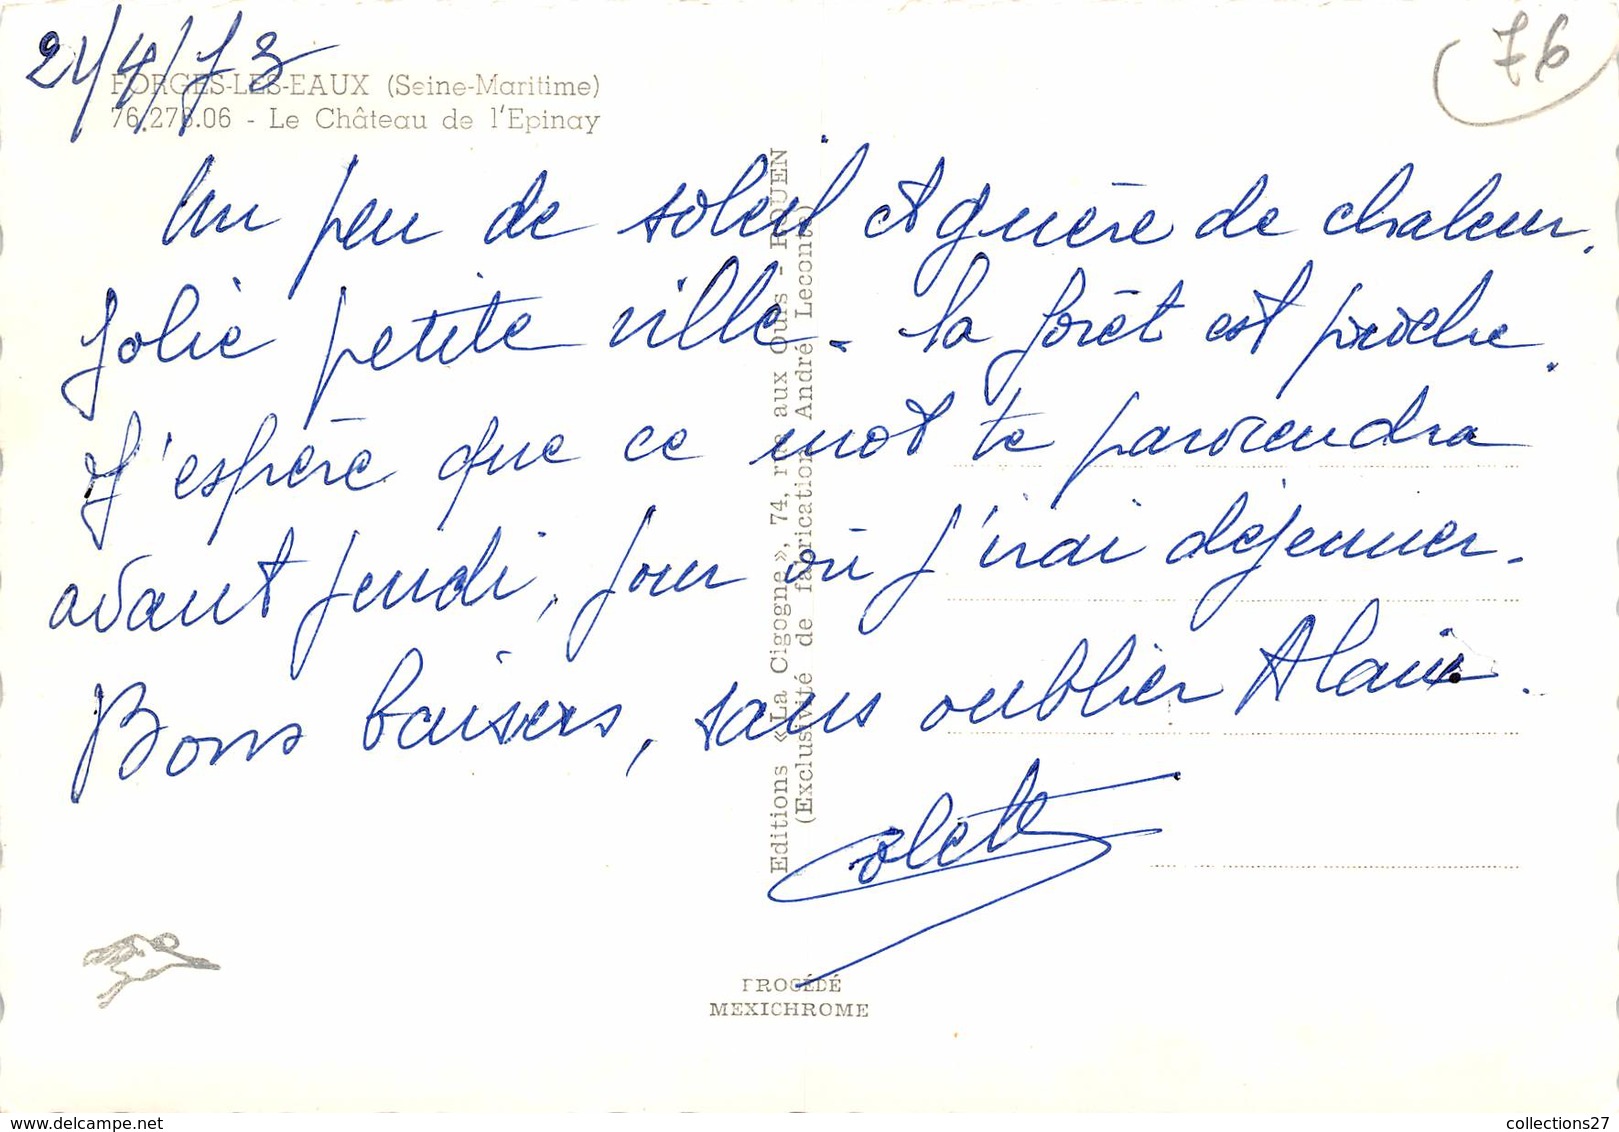 21/4/73
76
FORGES-LES-EAUX (Seine-Maritime)
76.278.06 - Le Château de l'Epinay
Un peu de soleil et guère de chaleur.
Jolie petite ville - la forêt est proche.
J'espère que ce mot te parviendra
avant jeudi, jour où j'irai déjeuner.
Bons baisers, sans oublier Alain.
Colette
Editions «La Cigogne», 74, rue aux Ours - ROUEN
(Exclusivité de fabrication André Leconte)
PROCÉDÉ
MEXICHROME
collections27